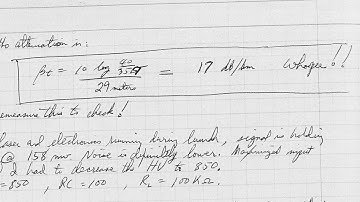 attenuation is:
βt = 10 log 40/35 / 29 meters = 17 db/km Whopee!!
remeasure this to check!
laser and electronics running during launch, signal is holding
@ 158 mv. Noise is definitely lower. Maximized input
I had to decrease the HV to 850.
= 850, RC = 100, RL = 100 KΩ.